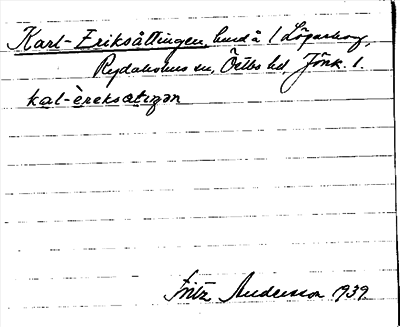 Karl-Eriksåttingen, hmd å 1 Löparskog,
Rydaholms sn, Östbo hd, Jönk. l.
kal-èreksatiŋən
Fritz Andersson 1939